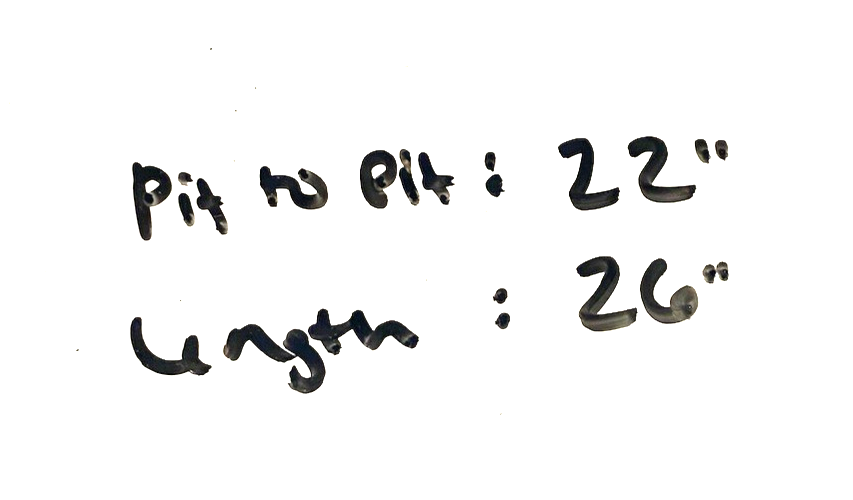 Pit to Pit : 22"
Length : 26"